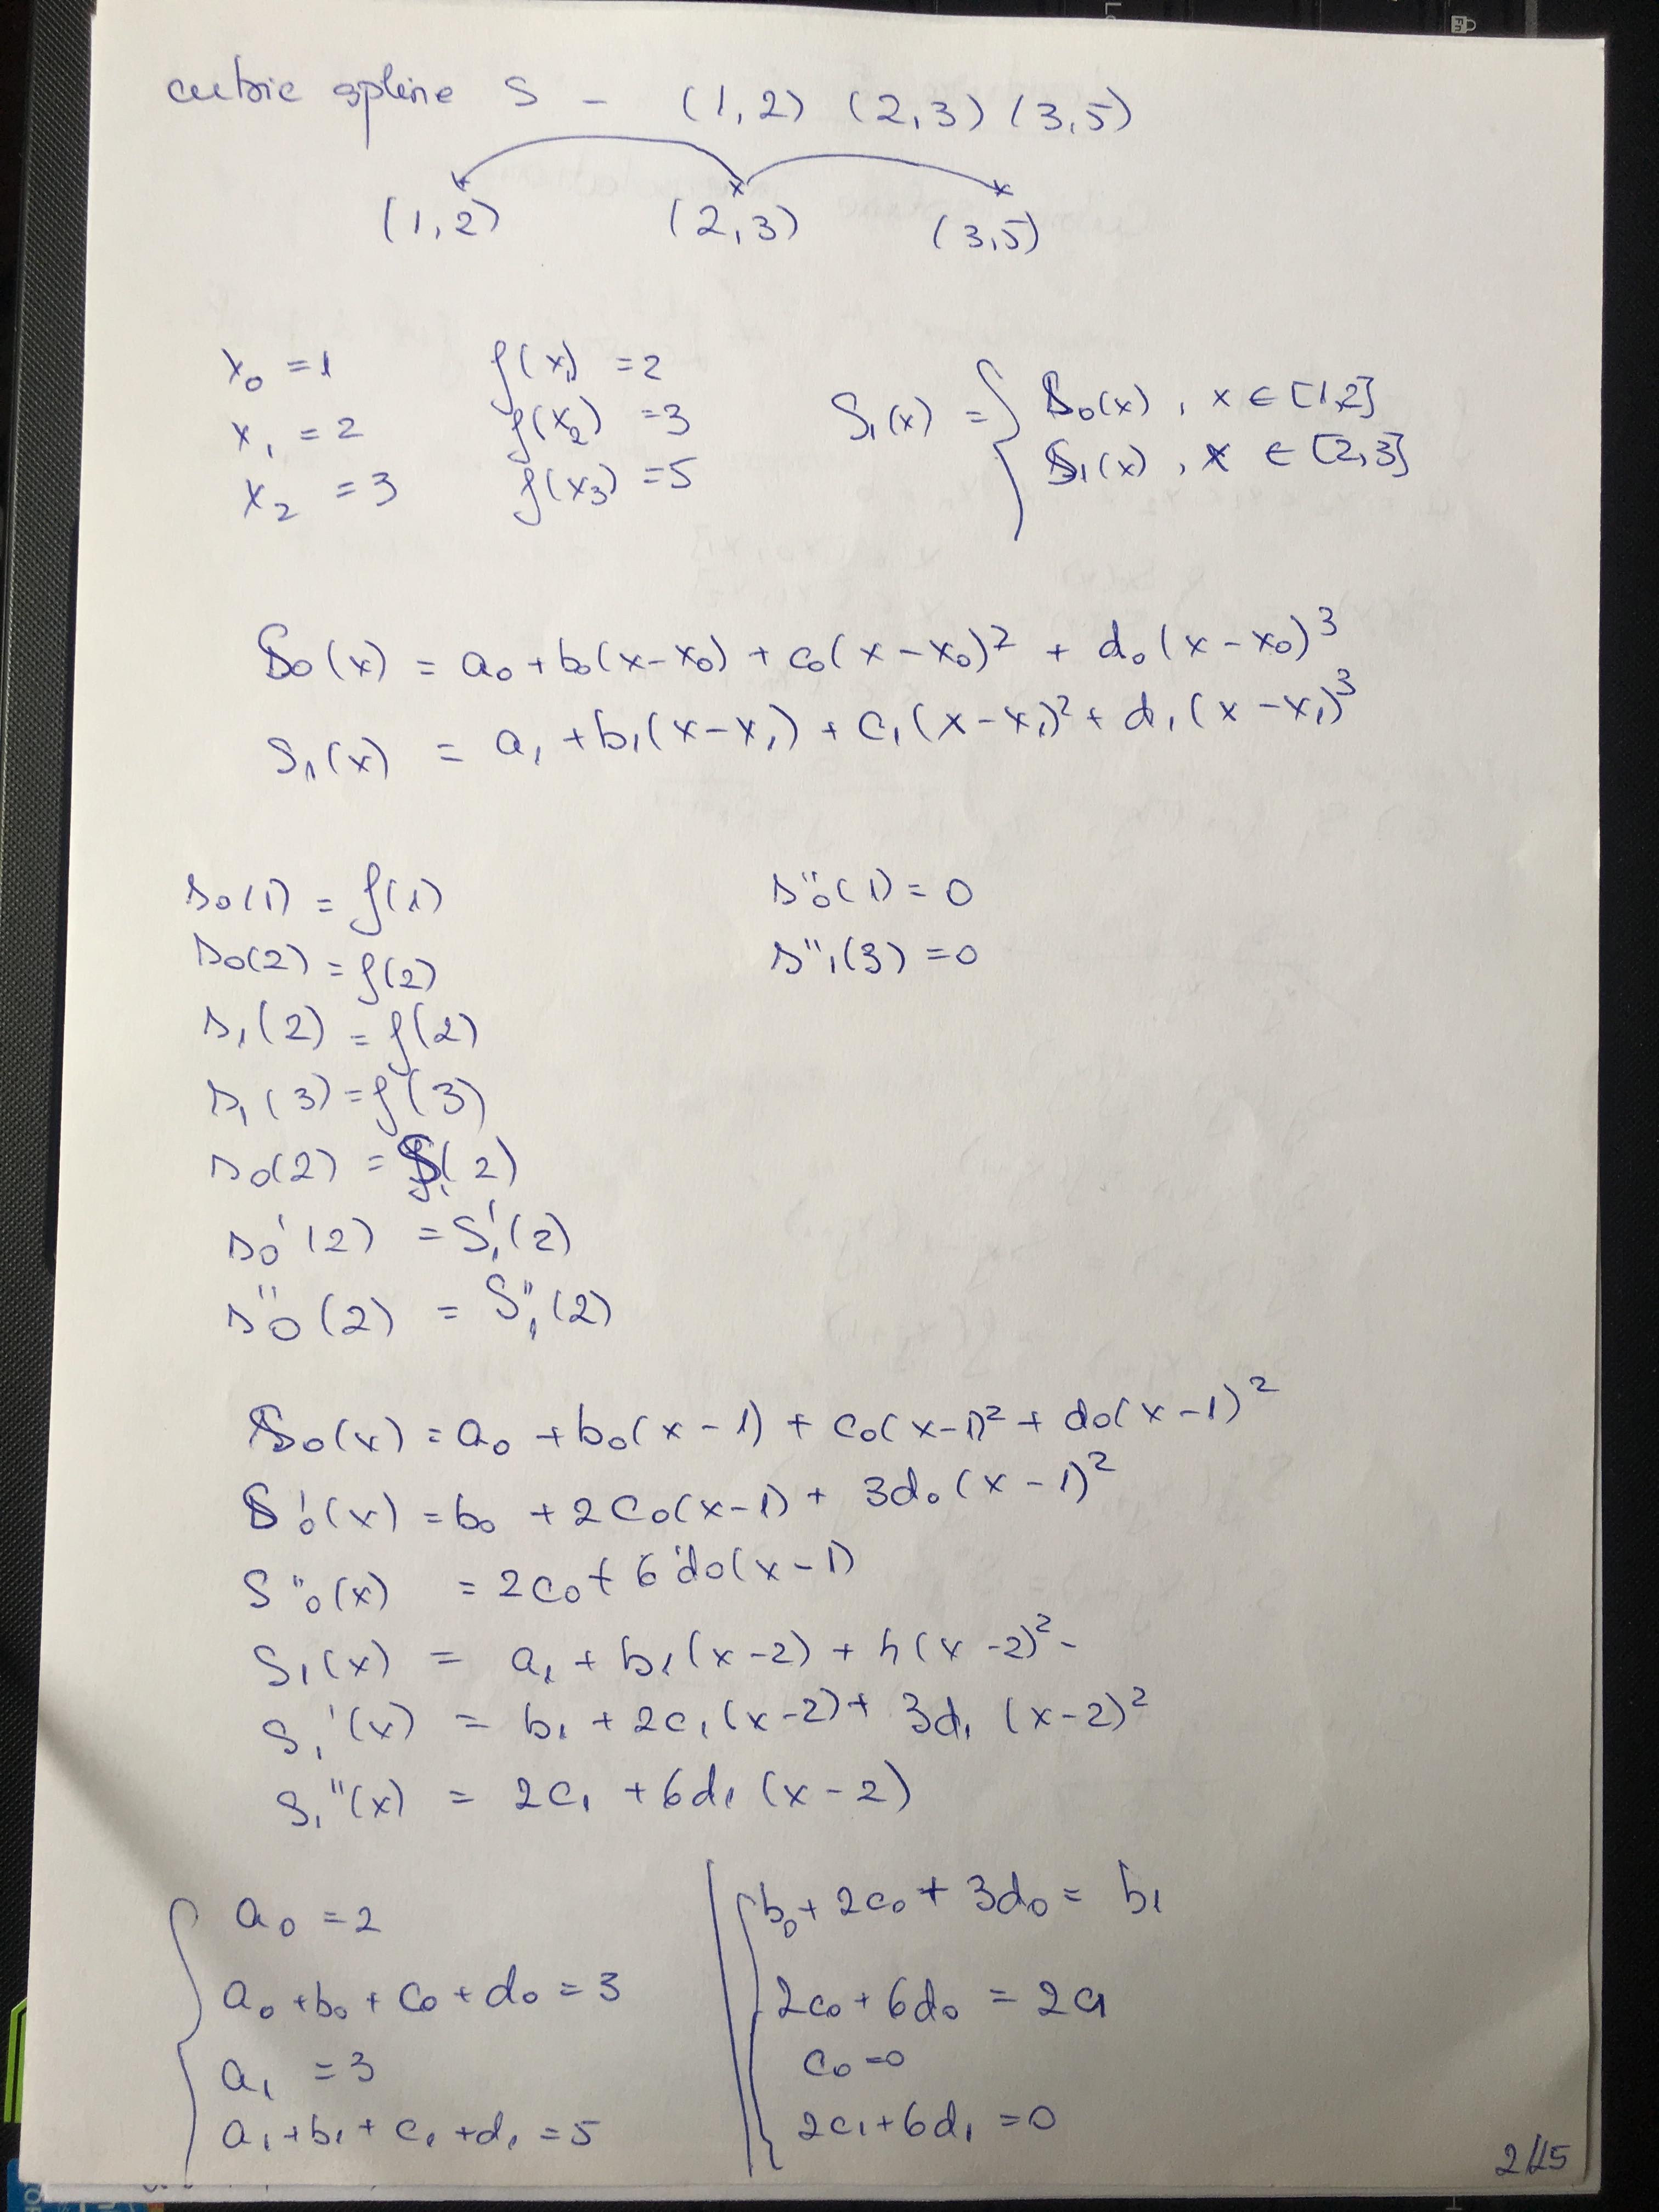 cubic spline S - (1,2) (2,3) (3,5)
(1,2) (2,3) (3,5)
x₀ = 1 f(x₁) = 2
x₁ = 2 f(x₂) = 3
x₂ = 3 f(x₃) = 5
S₁(x) = { S₀(x), x ∈ [1,2]
S₁(x), x ∈ [2,3]
S₀(x) = a₀ + b₀(x-x₀) + c₀(x-x₀)² + d₀(x-x₀)³
S₁(x) = a₁ + b₁(x-x₁) + c₁(x-x₁)² + d₁(x-x₁)³
s₀(1) = f(1) s₀''(1) = 0
s₀(2) = f(2) s''₁(3) = 0
s₁(2) = f(2)
s₁(3) = f(3)
s₀(2) = S₁(2)
s₀'(2) = S₁'(2)
s₀''(2) = S₁''(2)
S₀(x) = a₀ + b₀(x-1) + c₀(x-1)² + d₀(x-1)²
S₀'(x) = b₀ + 2c₀(x-1) + 3d₀(x-1)²
S₀''(x) = 2c₀ + 6d₀(x-1)
S₁(x) = a₁ + b₁(x-2) + (x-2)² -
S₁'(x) = b₁ + 2c₁(x-2) + 3d₁(x-2)²
S₁''(x) = 2c₁ + 6d₁(x-2)
a₀ = 2 b₀ + 2c₀ + 3d₀ = b₁
a₀ + b₀ + c₀ + d₀ = 3 2c₀ + 6d₀ = 2c₁
a₁ = 3 c₀ = 0
a₁ + b₁ + c₁ + d₁ = 5 2c₁ + 6d₁ = 0